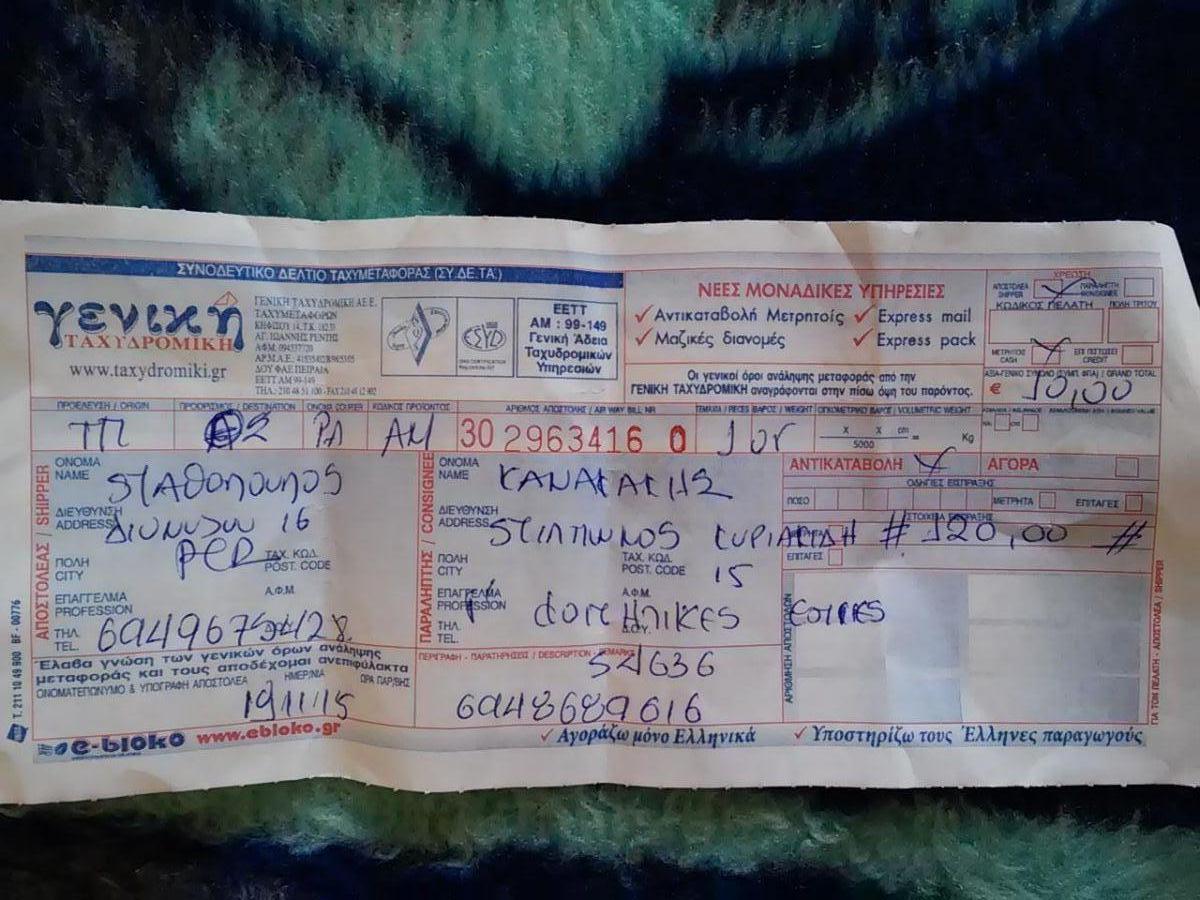 ΣΥΝΟΔΕΥΤΙΚΟ ΔΕΛΤΙΟ ΤΑΧΥΜΕΤΑΦΟΡΑΣ (ΣΥ.ΔΕ.ΤΑ.)
γενική
ΤΑΧΥΔΡΟΜΙΚΗ
www.taxydromiki.gr
ΓΕΝΙΚΗ ΤΑΧΥΔΡΟΜΙΚΗ ΑΕ Ε.
ΤΑΧΥΜΕΤΑΦΟΡΩΝ
ΚΗΦΙΣΟΥ 14, Τ.Κ. 182 33
ΑΓ. ΙΩΑΝΝΗΣ ΡΕΝΤΗΣ
ΔΟΥ ΦΑΕ ΠΕΙΡΑΙΑ
ΕΕΤΤ ΑΜ 99-149
ΕΣΥΔ
ΕΕΤΤ
ΑΜ : 99-149
Γενική Άδεια
Ταχυδρομικών
Υπηρεσιών
ΝΕΕΣ ΜΟΝΑΔΙΚΕΣ ΥΠΗΡΕΣΙΕΣ
✓ Αντικαταβολή Μετρητοίς ✓ Express mail
✓ Μαζικές διανομές ✓ Express pack
Οι γενικοί όροι ανάληψης μεταφοράς από την
ΓΕΝΙΚΗ ΤΑΧΥΔΡΟΜΙΚΗ αναγράφονται στην πίσω όψη του παρόντος.
ΧΡΕΩΣΗ
ΑΠΟΣΤΟΛΕΑ SHIPPER ΠΑΡΑΛΗΠΤΗ CONSIGNEE
ΚΩΔΙΚΟΣ ΠΕΛΑΤΗ ΠΟΛΗ ΤΡΙΤΟΥ
ΜΕΤΡΗΤΟΙΣ CASH ΕΠΙ ΠΙΣΤΩΣΕΙ CREDIT
ΑΞΙΑ-ΓΕΝΙΚΟ ΣΥΝΟΛΟ (ΣΥΜΠ. ΦΠΑ) / GRAND TOTAL
€ 10,00
ΠΡΟΕΛΕΥΣΗ / ORIGIN ΠΡΟΟΡΙΣΜΟΣ / DESTINATION ΟΝΟΜΑ COURIER ΚΩΔΙΚΟΣ ΠΡΟΪΟΝΤΟΣ ΑΡΙΘΜΟΣ ΑΠΟΣΤΟΛΗΣ / AIR WAY BILL NR ΤΕΜΑΧΙΑ / PIECES ΒΑΡΟΣ / WEIGHT ΟΓΚΟΜΕΤΡΙΚΟ ΒΑΡΟΣ / VOLUMETRIC WEIGHT
ΤΠ ΡΛ ΑΜ 30 2963416 0
x x cm
5000 = Kg
ΑΠΟΣΤΟΛΕΑΣ / SHIPPER
ΟΝΟΜΑ
NAME
ΣΤΑθοπουλος
ΔΙΕΥΘΥΝΣΗ
ADDRESS
Διονυσου 16
ΠΟΛΗ
CITY
ΤΑΧ. ΚΩΔ.
POST. CODE
ΕΠΑΓΓΕΛΜΑ
PROFESSION
Α.Φ.Μ.
ΤΗΛ.
TEL.
ΠΑΡΑΛΗΠΤΗΣ / CONSIGNEE
ΟΝΟΜΑ
NAME
ΚΑΝΑΚΑΚΗΣ
ΔΙΕΥΘΥΝΣΗ
ADDRESS
ΚΥΡΙΑΚΙΔΗ
ΠΟΛΗ
CITY
ΤΑΧ. ΚΩΔ.
POST. CODE
15
ΕΠΑΓΓΕΛΜΑ
PROFESSION
Α.Φ.Μ.
Δ.Ο.Υ.
ΤΗΛ.
TEL.
ΑΝΤΙΚΑΤΑΒΟΛΗ ΑΓΟΡΑ
ΟΔΗΓΙΕΣ ΕΙΣΠΡΑΞΗΣ
ΠΟΣΟ ΜΕΤΡΗΤΑ ΕΠΙΤΑΓΕΣ
ΣΤΟΙΧΕΙΑ ΕΙΣΠΡΑΞΗΣ
# 120,00 #
ΕΠΙΤΑΓΕΣ
ΑΡΙΘΜΗΣΗ ΑΠΟΣΤΟΛΩΝ
ΓΙΑ ΤΟΝ ΠΕΛΑΤΗ - ΑΠΟΣΤΟΛΕΑ / SHIPPER
Έλαβα γνώση των γενικών όρων ανάληψης
μεταφοράς και τους αποδέχομαι ανεπιφύλακτα
ΟΝΟΜΑΤΕΠΩΝΥΜΟ & ΥΠΟΓΡΑΦΗ ΑΠΟΣΤΟΛΕΑ ΗΜΕΡ/ΝΙΑ ΩΡΑ ΠΑΡ/ΒΗΣ
19/11/15
ΠΕΡΙΓΡΑΦΗ - ΠΑΡΑΤΗΡΗΣΕΙΣ / DESCRIPTION - REMARKS
54636
6948689616
Τ. 211 10 49 900 BF - 00776
e-bloko www.ebloko.gr
✓ Αγοράζω μόνο Ελληνικά ✓ Υποστηρίζω τους Έλληνες παραγωγούς